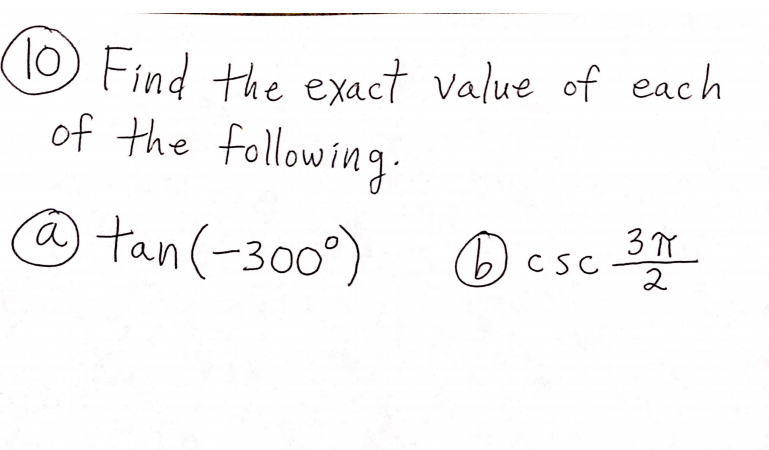 10 Find the exact value of each
of the following.
a tan(-300°) b csc 3π/2